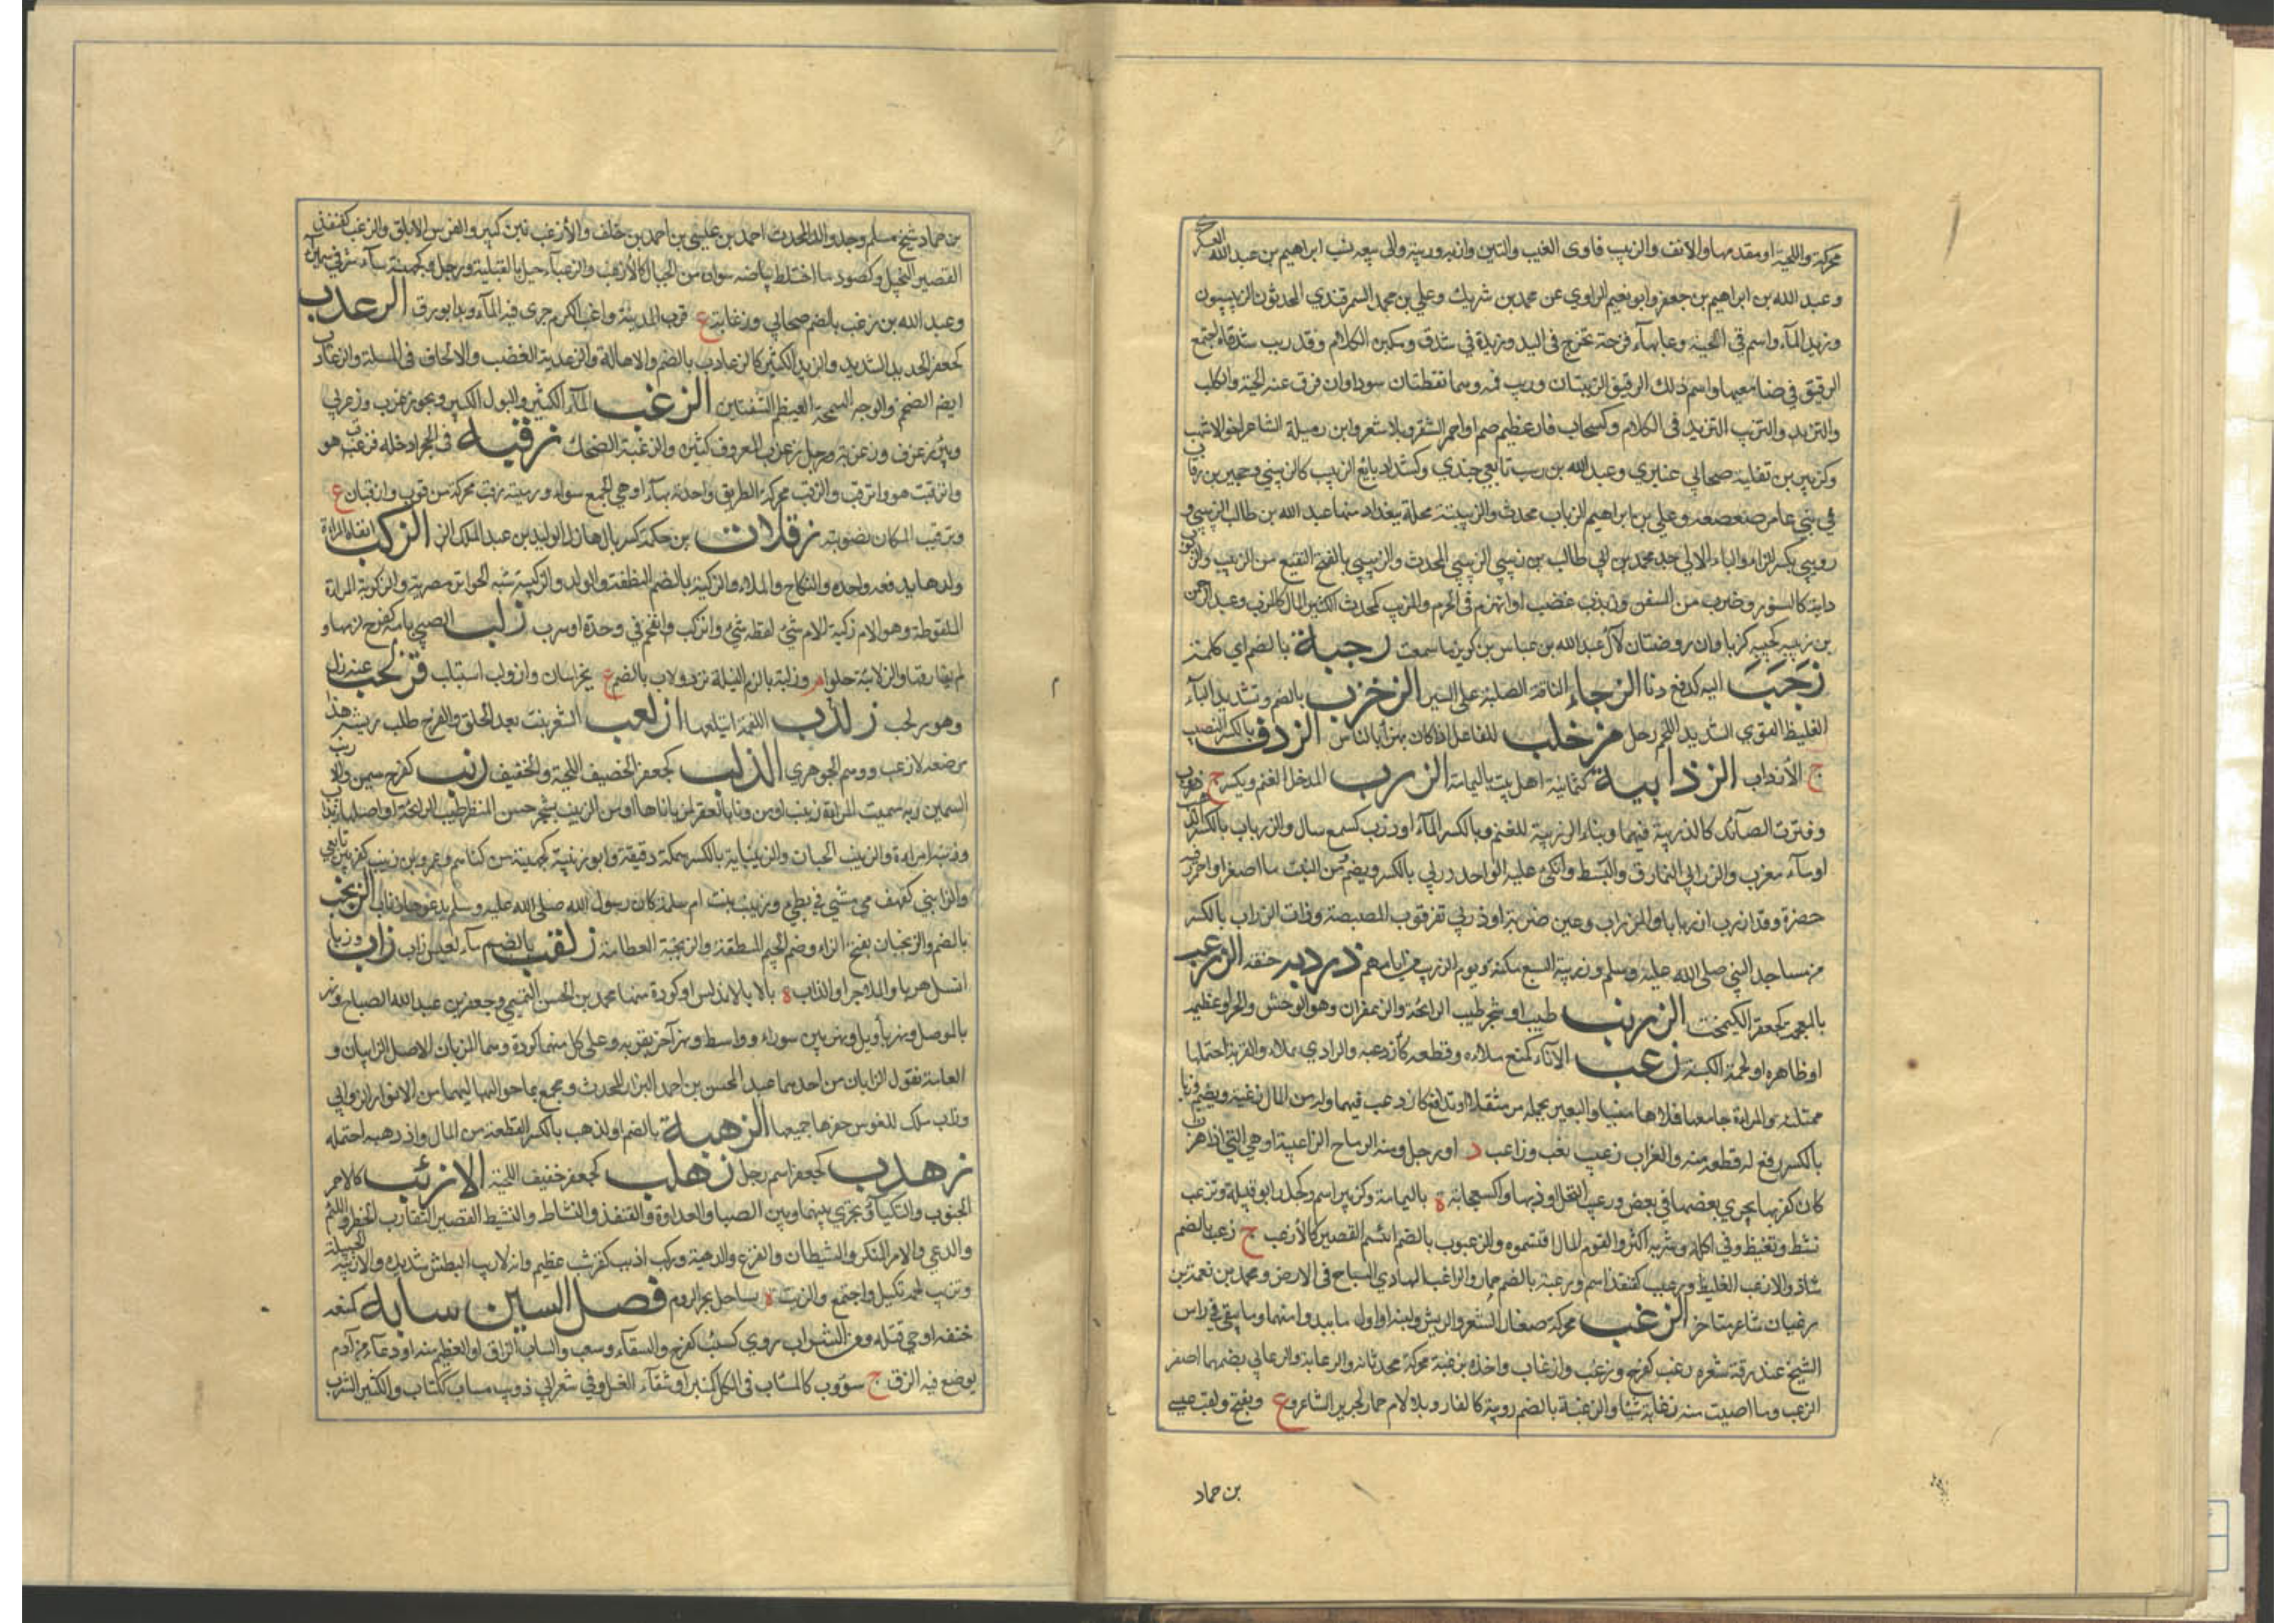 محركة واللحية او مقدمها والانف والزبيب ذاوى العنب والتين وازبه وزببه والى بيعه نسب ابراهيم بن عبد الله العسكري
وعبد الله بن ابراهيم بن جعفر وابو نعيم الراوي عن محمد بن شريك وعلي بن محمد السمرقندي المحدثون الزبيبيون
وزبد الماء واسم في الحية وعبا بهاء قرحة تخرج في اليد وزبدة في شدق ومكبن الكلام وقد زبب شدقاه اجتمع
الريق في صامغيهما واسم ذلك الريق الزبيبتان وزبب فمه وهما نقطتان سوداوان فوق عينه الحية والكلب
والتزبد والتزبب التزيد في الكلام وكسحاب فار عظيم اصم او احمر الشعر وبلا شعر وابن رميلة الشاعر اخو الاشهب
وكزبير بن ثعلبة صحابي عنبري وعبد الله بن زبيب تابعي جندي وكشداد بائع الزبيب كالزبيبي وحجير بن زباب
في بني عامر صعصعه وعلي بن ابراهيم الزباب محدث والزبيبية محلة ببغداد منها عبد الله بن طالب الزبيبي و
بكسر الزاء والباء الاولى جد محمد بن ابي طالب بن زبيبي الزبيبي المحدث والزبيبي بالفتح النقيع من الزبيب والزبزب
دابة كالسنور وضرب من السفن وزبزب غضب او انهزم في الحرم والمزبب كمحدث الكثير المال كالزب وعبد الرحمن
بن زبيبة كجبيبه كزباوان روضتان لآل عبد الله بن عباس بن كريز ما سمعت زجبة بالضم اي كلمة
زحب اليه كدفع دنا الزخباء الناقة الصلبة على السير الزخزب بالضم وتشديد الباء
الغليظ القوي الشديد اللحم رجل مزخلب للفاعل اذا كان يهزأ بالناس الزدب بالكسر النصيب
ج الأزداب الزذابية كثمانية اهل بيت باليمامة الزرب المدخل الغنم ويكسر ج زروب
وقترة الصائد كالزريبة فيهما وبناء الزريبة للغنم وبالكسر الماء او زرب كسمع سال والزرياب بالكسر الذهب
او ماءه معرب والزرابي النمارق والبسط وانكئ عليه الواحد زربي بالكسر ويضم من النبت ما اصفر او احمر وفيه
خضرة وقد ازرب ازريبابا والزراب وعين زربة او زربي ثغر قوب المصيصة وذات الزراب بالكسر
من مساجد النبي صلى الله عليه وسلم وزريبة السبع مكنه ويوم الزريب من ايامهم زردبه خنقه الزرغب
بالمعجمة كجعفر الكيمخت الزرنب طيب او شجر طيب الرائحة والزعفران وهو الوخش والحر او عظيمه
او ظاهره او لحمة الكينة زعب الاناء كمنع ملاءه وقطعه كازدعبه والوادي بملاه والقربة احتملها
ممتلئة والمراة جامعها فملاها منيا والبعير بحمله مر مثقلا او تدافع كازدعب فيهما وله من المال زعبة ويضم وزعبا
بالكسر دفع له قطعة منه والغراب زعيب نعب وزاعب د او رجل ومنه الرماح الزاعبية او هي التي اذا هزت
كان كعوبها يجري بعضها في بعض وزعب النحل او ذبها وكسحابة ة باليمامة وكزبير اسم وكجل وابو قبيلة وتزعب
نشط وتغيظ وفي اكله وشربه اكثر والقوم المال اقتسموه والزعبوب بالضم اللئيم القصير كالأزعب ج زعب بالضم
شاذ والازعب الغليظ وزعيب كقنفذ اسم وزعبة بالضم حمار والزاعب الهادي السياح في الارض ومحمد بن نعمة بن
زغبان شاعر متاخر الزغب محركة صغار الشعر والريش ولينه او اول ما يبدو منهما وما يبقى في راس
الشيخ عند رقة شعره زغب كفرح وزغب وازغاب واخذه بزغبة محركة محدثانه والزغابة والزغابي بضمهما اصغر
الزغب وما اصبت منه زغابة شيئا والزغبة بالضم دويبة كالفار وبلا لام حمار لجرير الشاعر وع ويفتح ولقب عيسى
بن حماد
بن حماد شيخ مسلم وجد والد المحدث احمد بن عيسى بن احمد بن خلف والأزغب تين كبير والفرس الابلق والزغب كقنفذ
القصير البخيل وكصرد ما اختلط بياضه بسواده من الحبال كالأزغب والزغباء جبل بالقبلية ورجل وكجهينة ماء شرقي سميراء
وعبد الله بن زغب بالضم صحابي وزغابة ع قرب المدينة وازغب الكرم جرى فيه الماء وبدا يورق الزغدب
كجعفر الهدير الشديد والزبد الكثير كالزغادب بالضم والاهالة والزغدبة الغضب والالحاف في المسلة والزغادب
ايضا الضخم الوجه السمجه العظيم الشفتين الزغرب الماء الكثير والبول الكثير وبحور زغرب وزغربي
وبير زغرف وزغربة ورجل زغرب المعروف كثيره والزغربة الضحك زقبه في الجحر ادخله فزقب هو
وانزقبت هو وانزقب والزقب محركة الطريق واحدته بهاء او هي الجمع سواء ورميته من زقب محركة من قرب وازقبان ع
وتزقيب المكان تصويته زقلاب بن حكمة كسربال هازل الوليد بن عبد الملك الزكب القاء المراة
ولدها بدفعة واحدة والنكاح والملاء والزكبة بالضم النطفة والولد والزكيبة شبه الجوالق مصرية والزكوبة المراة
الملقوطة وهو الام زكبة الام شيء لفظه شيء وانزكب وانقحم في وهدة او سرب زلب الصبي بامه كفرح لزمها و
لم يفارقها والزلابية حلواء م وزلبة بالزم النبلة زردولاب بالضم ع بخراسان وازدلب استلب زلحب عنه زل
وهو يزلحب زلدب اللقمة ابتلعها ازلعب الشعر نبت بعد الحلق والفرخ طلب ريشه هذا
موضعه لا زعب ووهم الجوهري الزلهب كجعفر الخفيف اللحية والخفيف زنب كفرح سمن والازنب
السمين وبه سميت المراة زينب او من زنابى العقرب لزباناها او من الزينب بشجر حسن المنظر طيب الرائحة او اصلها زين اب
وزنبة امراة والزينب الجبان والزينابة بالكسر سمكة دقيقة وابو زنيبة كجهينة من كناهم وعمرو بن زنيب كزبير تابعي
والزانبى كقهقري مشي في بطئ وزينب بنت ام سلمة كان رسول الله صلى الله عليه وسلم يدعوها زناب الزنجب
بالضم والزنجبان بفتح الزاء وضم الجيم المنطقة والزنجبة العظامة زنقب بالضم ماء لعبس زاب زاب وزبا
انسل هربا والماء جرا والزاب ة بالا بالاندلس او كورة منها محمد بن الحسن التميمي وجعفر بن عبد الله الصباح ونهر
بالموصل ونهر باربيل ونهر بين سوراء وواسط ونهر آخر بقربه وعلى كل منهما كورة وهما الزابان الاصل الزابيان و
العامة تقول الزابان من احدهما عبد المحسن بن احمد البزار المحدث وتجمع بما حواليهما من الانهار الزوابي
وزاب سلك للغوس حزها جميعا الزهبة بالضم او الزهب بالكسر القطعة من المال وازدهبه احتمله
زهدب كجعفر اسم رجل زهلب كجعفر خفيف اللحية الازيب كالاحمر
الجنوب والنكباء تجري بينها وبين الصبا والعداوة والقنفذ والنشاط والنشيط القصير المتقارب الخطو واللئيم
والدعي والامر المنكر والشيطان والفزع والدهية وركب ازيب كقرشب عظيم وانه لازيب البطش شديده والازيبة البخيلة
وتزيب لحمه تكتل واجتمع والزيب ة بساحل بحر الروم فصل السين سابه كمنعه
خنقه او حتى قتله ومن الشراب روي كسئب كفرح والسقاء وسعه والساب الزق او العظيم منه او وعاء من آدم
يوضع فيه الزق ج سؤوب كالمسأب في الكل كنبر او سقاء العسل وفي شعر ابي ذؤيب مساب ككتاب والكثير الشرب